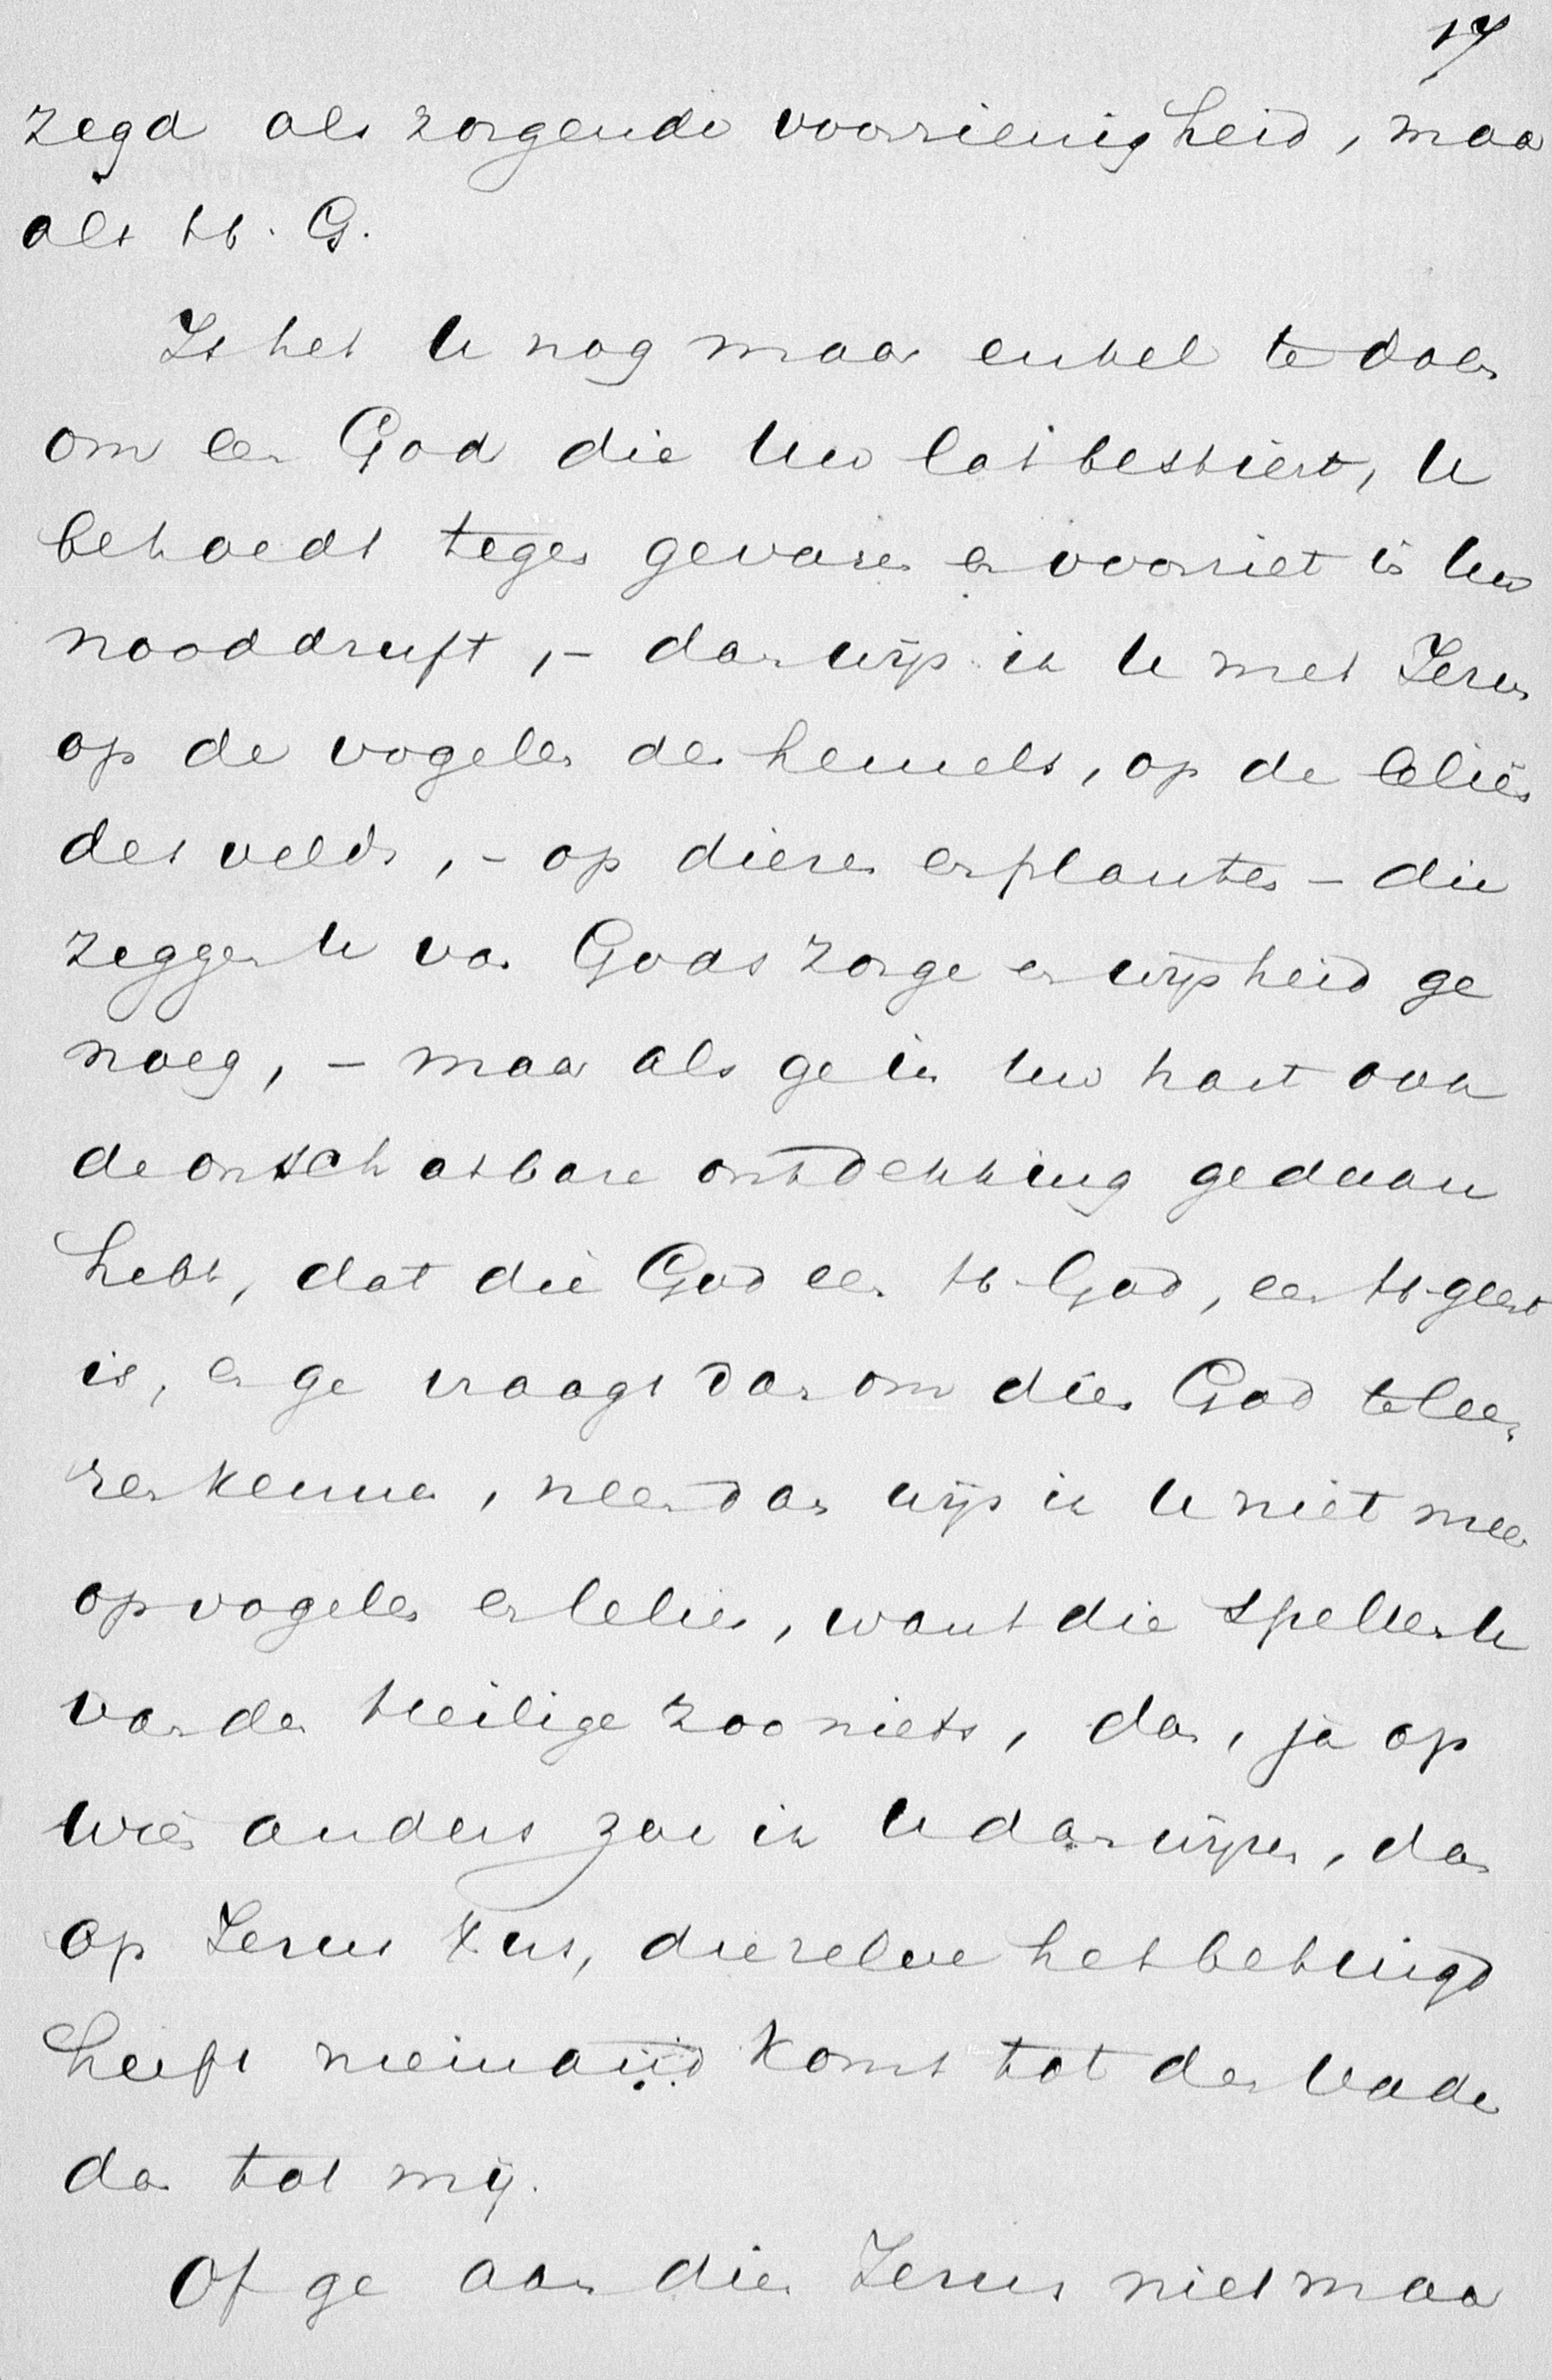 17
zegd als zorgende voorzienigheid, maar
als H. G.
Is het U nog maar enkel te doen
om een God die Uw lot bestiert, U
behoedt tegen gevaren en voorziet in Uw
nooddruft, – dan wijs ik U met Jezus
op de vogelen des hemels, op de leliën
des velds, – op dieren en planten – die
zeggen U van Gods zorge en wijsheid ge
noeg, – maar als ge in Uw hart ook
de onschatbare ontdekking gedaan
hebt, dat die God een H. God, een H. geest
is, en ge vraagt dan om dien God te lee
ren kennen, neen dan wijs ik U niet meer
op vogelen en lelien, want die spellen U
van den Heilige zoo niets, dan, ja op
wien anders zou ik U dan wijzen, dan
op Jezus Xus, die zelve het betuigd
heeft niemand komt tot den Vader
dan tot mij.
Of ge aan dien Jezus niet maar